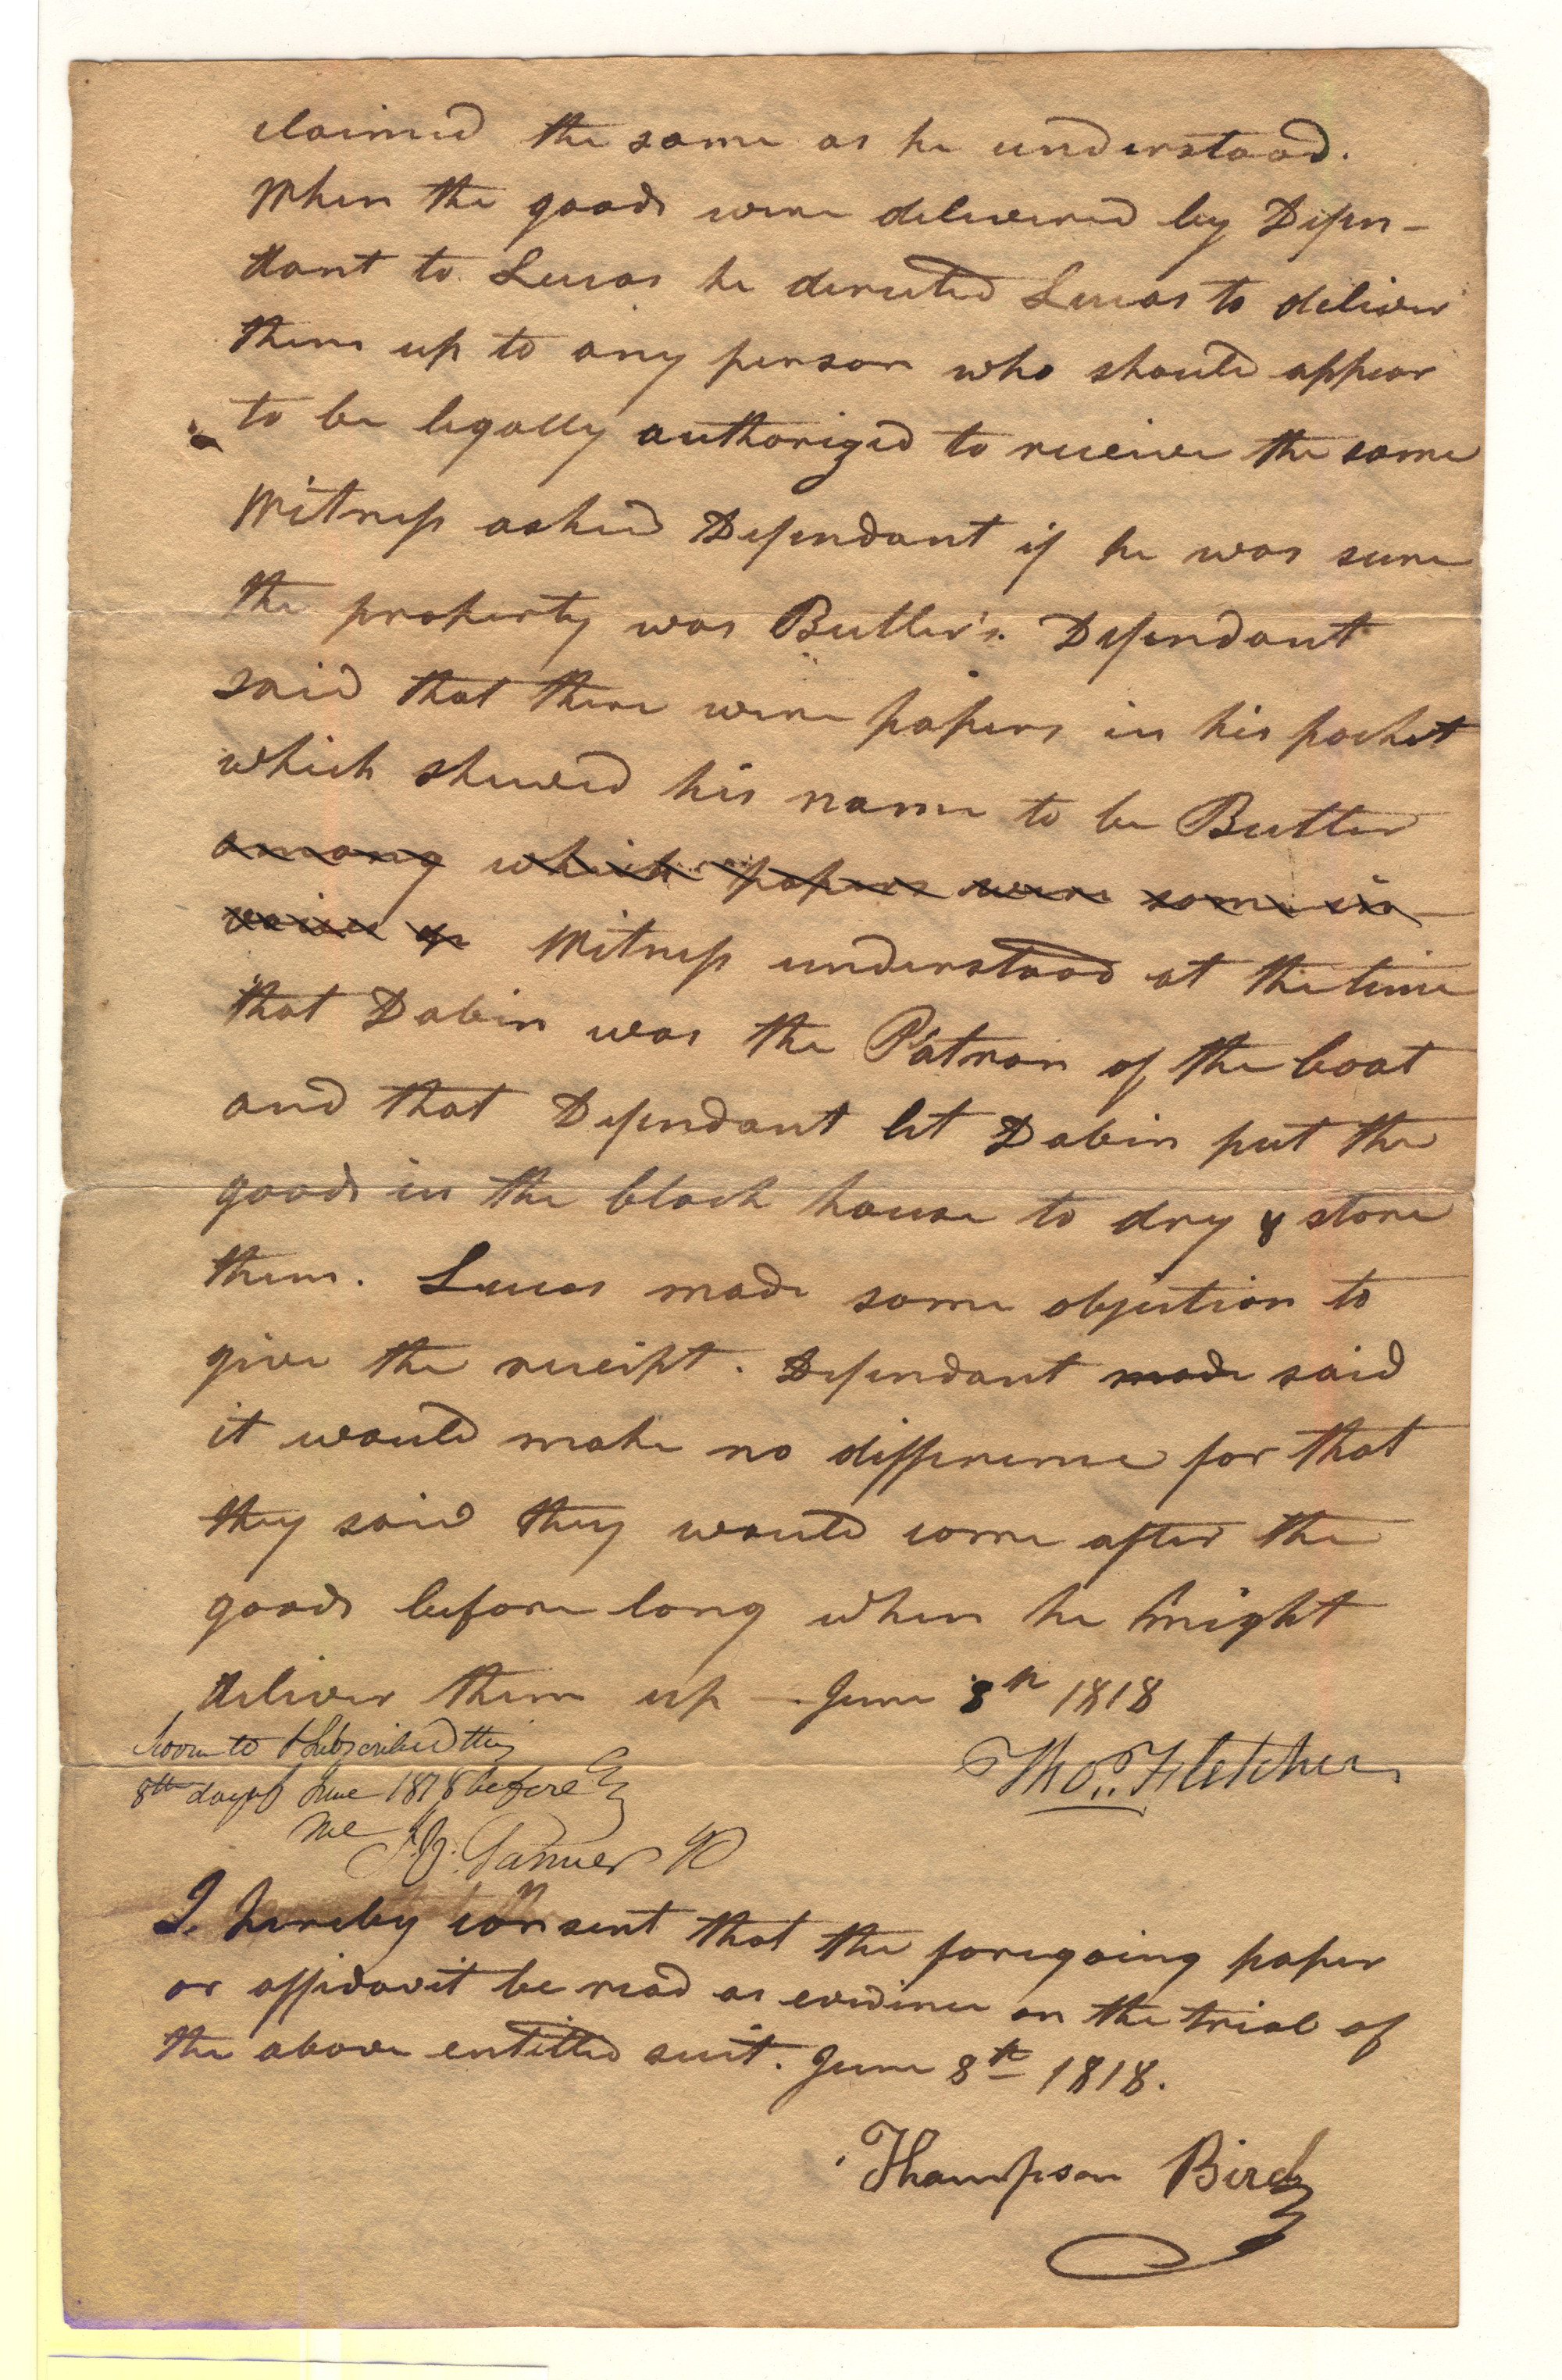 claimed the same as he understood.
When the goods were delivered by Defen-
dant to Lucas he derected Lucas to deliver
them up to any person who should appear
to be legally authorized to receive the same
Witness asked Defendant if he was sure
the property was Butler's. Defendant
said that there were papers in his pocket
which shewed his name to be Butler
among which papers were some in
voices of Witness understood at the time
that Dabin was the Patron of the boat
and that Defendant let Dabin put the
goods in the block house to dry & store
them. Lucas made some objection to
give the receipt. Defendant made said
it would make no difference for that
they said they would come after the
goods before long when he might
deliver them up - June 8th 1818
Sworn to & Subscribed this
8th day of June 1818 before
me
Thos. Fletcher
I hereby consent that the foregoing paper
or affidavit be read as evidence on the trial of
the above entitled suit. June 8th 1818.
Thompson Bird